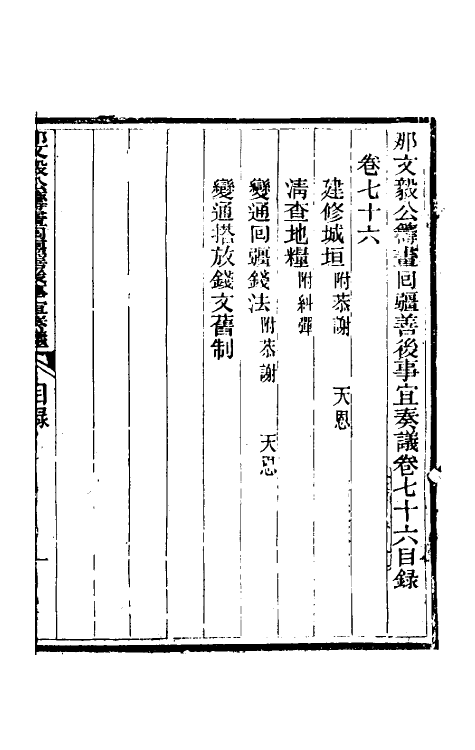 那文毅公籌畫回疆善後事宜奏議卷七十六目錄
卷七十六
建修城垣附恭謝 天恩
清查地糧附糾彈
變通回疆錢法附恭謝 天恩
變通搭放錢文舊制
那文毅公籌畫回疆善後事宜奏議 目錄 一